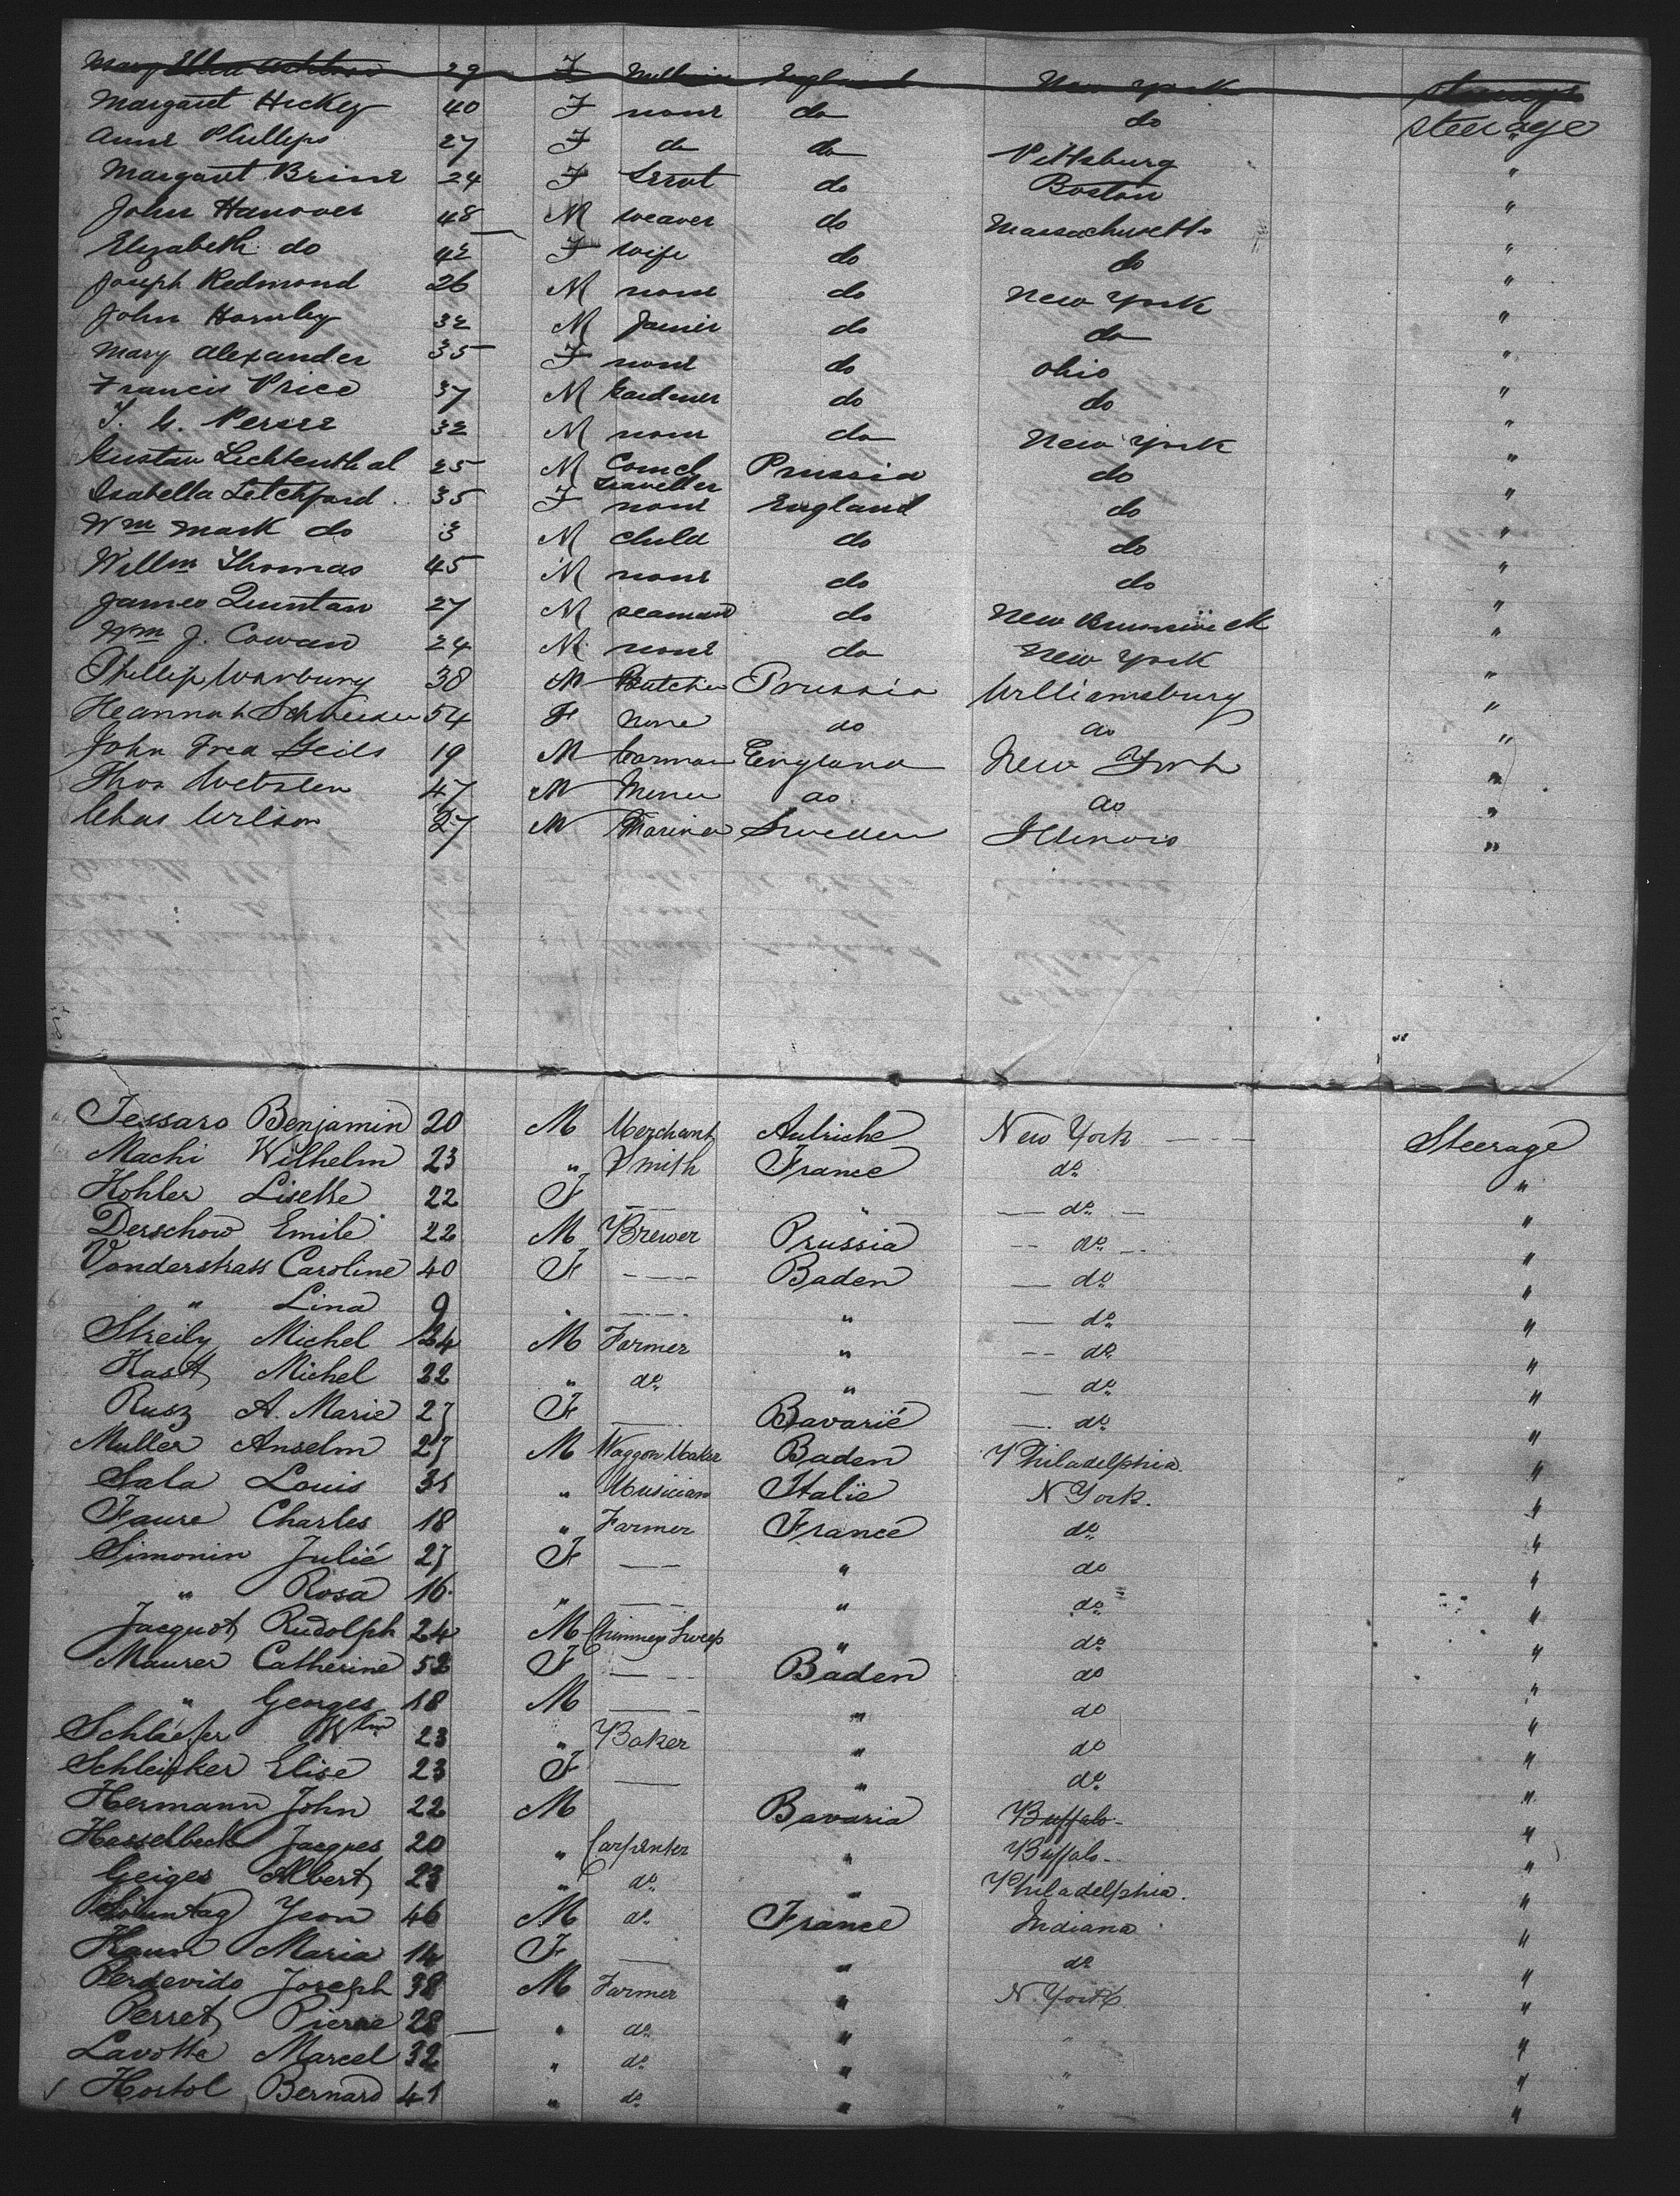 Mary Ellen 29 F Milliner England New York steerage
Margaret Hickey 40 F none do do steerage
Anne Phillips 27 F do do Pittsburg "
Margaret Brine 24 F Servt do Boston "
John Hanover 48 M weaver do Massachusetts "
Elizabeth do 42 F wife do do "
Joseph Redmond 26 M none do New York "
John Hornley 32 M do do "
Mary Alexander 35 F none do Ohio "
Francis Price 37 M Gardener do do "
32 M none do New York "
Gustav Lichtenthal 25 M Comcl Traveller Prussia do "
Isabella Letchford 35 F none England do "
Wm Mark do 3 M child do do "
Willm Thomas 45 M none do do "
James Quintan 27 M seaman do New Brunswick "
Wm J. Cowan 24 M none do New York "
Phillip Warburg 38 M Butcher Prussia Williamsburg "
Heannah Schneider 54 F None do do "
John Fred 19 M Carman England New York "
Thos Webster 47 M Miner do do "
Chas Wilson 27 M Mariner Sweden Illinois "
Tessaro Benjamin 20 M Merchant Autriche New York Steerage
Machi Wilhelm 23 " Smith France do "
Kohler Lisette 22 F — " do "
Derschow Emile 22 M Brewer Prussia do "
Vonderstrass Caroline 40 F — Baden do "
" Lina 9 " — " do "
Streily Michel 24 M Farmer " do "
Kast Michel 22 " do " do "
Rusz A. Marie 27 F — Bavarié do "
Muller Anselm 27 M Waggon Maker Baden Philadelphia. "
Sala Louis 35 " Musician Italïe N York. "
Faure Charles 18 " Farmer France do "
Simonin Julié 27 F — " do "
" Rosa 16 " — " do "
Jacquot Rudolph 24 M Chimney Sweep " do "
Maurer Catherine 52 F — Baden do "
" Georges 18 M — " do "
Schläefer Wlm 23 " Baker " do "
Schleisker Elise 23 F — " do "
Hermann John 22 M Bavaria Buffalo "
Hasselbeck Jacques 20 " Carpenter " Buffalo "
Geiger Albert 23 " do " Philadelphia. "
Sonntag Jean 46 M do France Indiana "
Kaum Maria 14 F — " do "
Perdevido Joseph 38 M Farmer " N. York "
Perret Pierre 28 " do " " "
Lavotte Marcel 32 " do " " "
Hostol Bernard 41 " do " " "